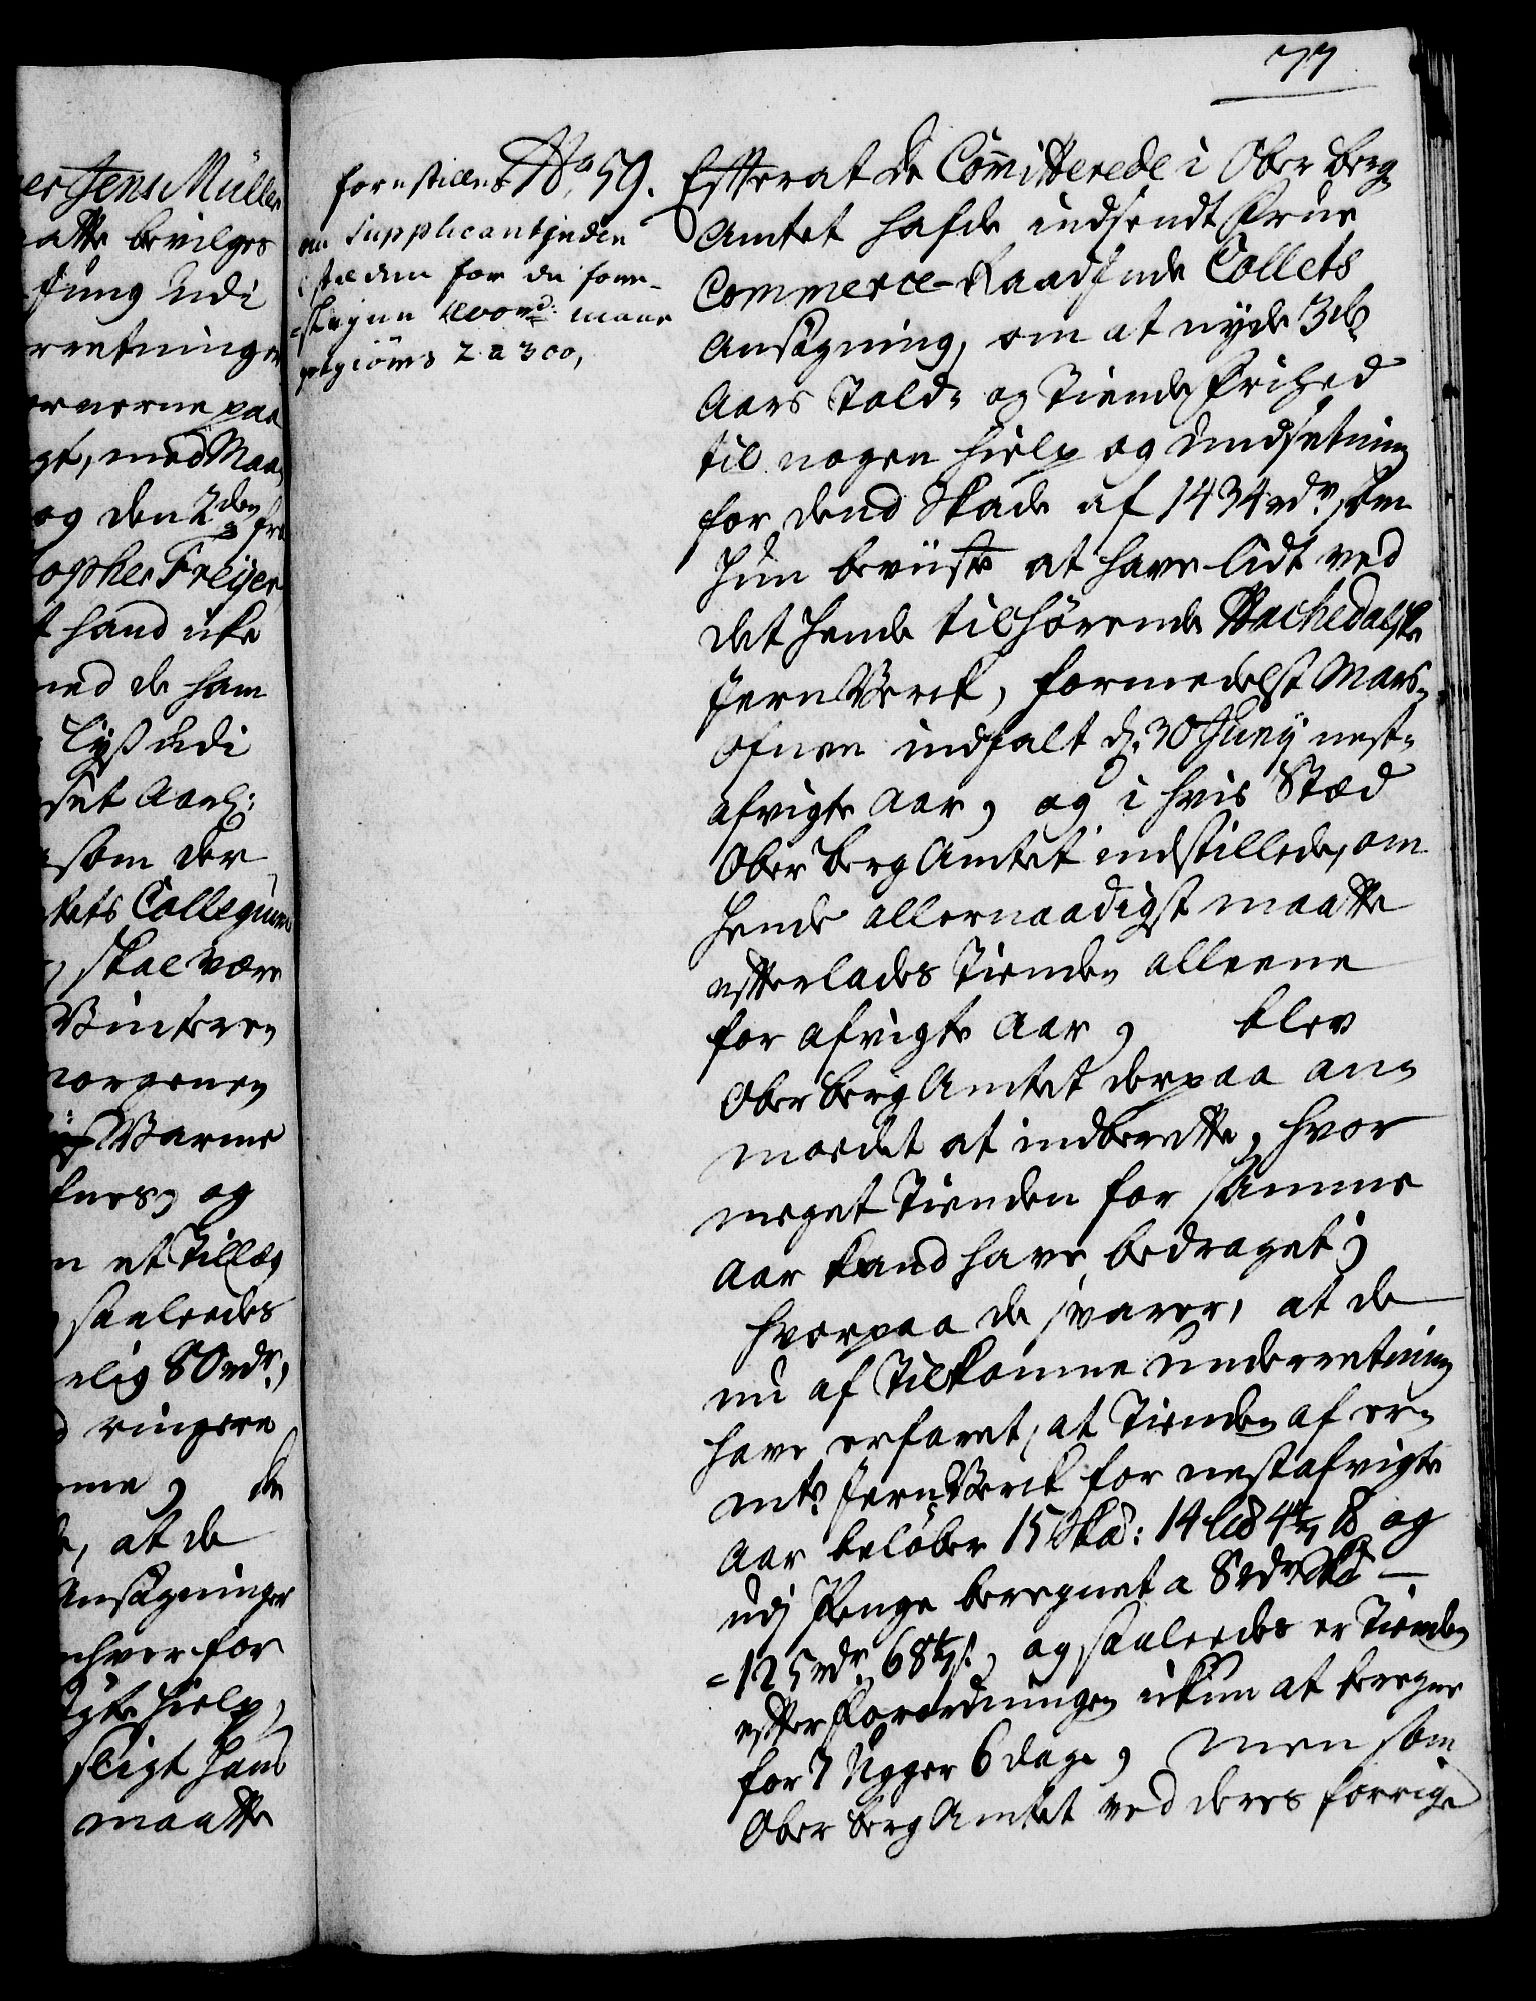 77
er Jens Müller
atte bevilges
fung udi
rretningen
ernerne paa
gt, med Maa
og den 2den fr
opher Freyer
t hand icke
ned de ham
Lyß udi
set Aarl:
som der
tets Collegium
skal være
Vinteren
morgenen
Varme
og
n et Tillæg
saaledes
rlig 80 rdr.,
d ringere
me, de
, at de
Ansøgninger
hver for
gte hielp,
sligt hand
maatte
forestilles
No. 59.
om Supplicantinden
i stæden for de fore-
=slagne 400 rd: maae
godgiöres 2 a 300,
Effterat de Committerede i Ober Berg
Amtet hafde indsendt Frue
Commerce-Raadinde Collets
Ansögning, om at nyde 3de
Aars Told- og Tiende Frihed
til nogen hielp og Undsætning
for dend Skade af 1434 rdr., som
hun beviiste at have lidt ved
det hende tilhörende Hachedalske
Jern Verck, formedelst Mars-
Ofnen indfalt d. 30 Juny nest-
afvigte Aar, og i hvis Stæd
Ober Berg Amtet indstillede, om
hende allernaadigst maatte
effterlades Tienden alleene
for afvigte Aar, blev
Ober Berg Amtet derpaa an-
moedet at indberette, hvor
meget Tienden for samme
Aar kand have bedraget;
hvorpaa de svarer, at de
nu af Tilkomne underretning
have erfaret, at Tienden af er-
mte. Jern Verck for nestafvigte
Aar belöber 15 Skd: 14 Lb 4 lb og
udj Penge beregnet a 8 rdr. Skd
=125 rdr. 68 s., og saaledes er Tienden
effter Forordningen ickun at beregne
for 7 Ugger 6 dage, men som
Ober Berg Amtet ved deres forrige